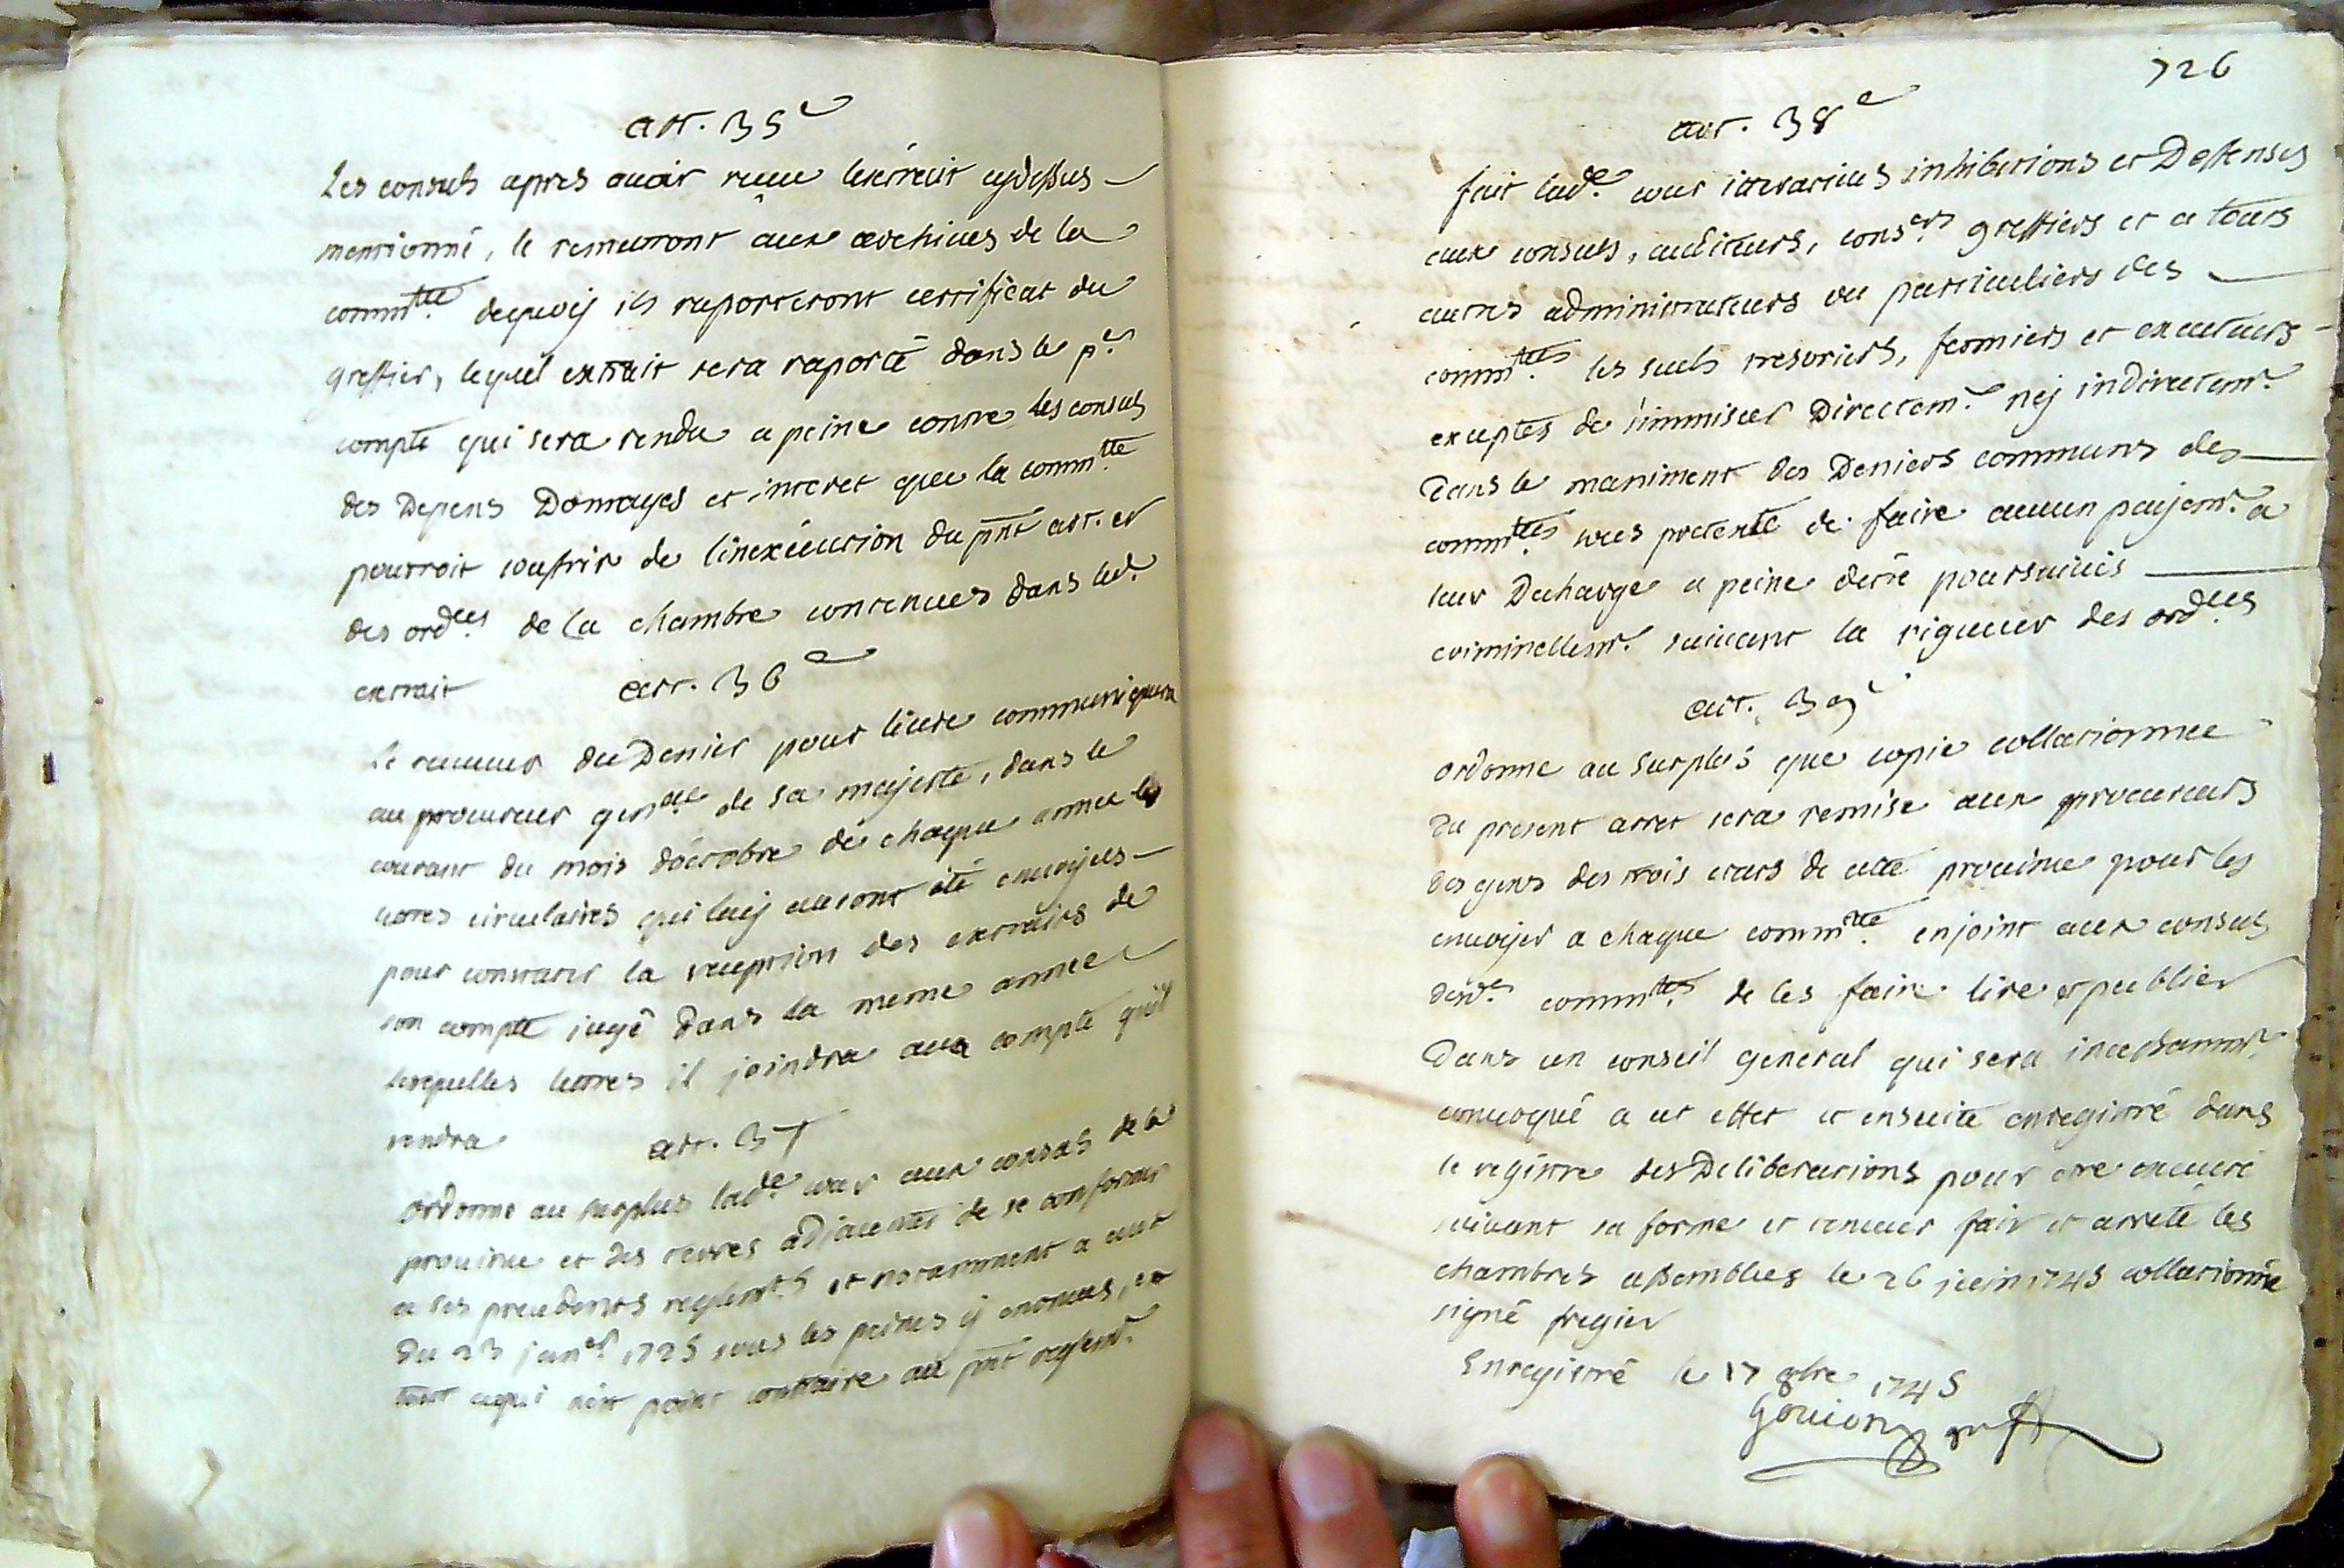 art. 35e
Les consuls apres avoir reçeu lextrait cydessus
mentionné, le remettront aux archives de la
commtté dequoy ils raporteront certificat du
greffier, lequel extrait sera raporté dans le pr
compte qui sera rendu a peine contre les consuls
des Depens Domages et interet que la commtté
pourroit souffrir de linexécution du pnt art. et
des ordces de la chambre contenues dans led.
extrait
art. 36e
Le receveur du Denier pour livre communiquera
au procureur genal de sa majesté, dans le
courant du mois doctobre de chaque année les
lettres circulaires qui luy auront été envoyées
pour constater la reception des extraits de
son compte jugé dans la meme année
lesquelles lettres il joindra au compte quil
rendra
art. 37
ordonne au surplus lade cour aux consuls de la
province et des terres adjacentes de se conformer
a ses precedents reglemts et notamment a celuy
du 23 janer 1725 sous les peines y contenues, en
tout cequi nest point contraire au pnt reglemt.
726
art. 38e
fait lade cour itteratives inhibitions et Deffenses
aux consuls, auditeurs, consers greffiers et a touts
autres administrateurs ou particuliers des
commttés les seuls tresoriers, fermiers et exacteurs
exceptés de simmiscer Directemt. ney indirectemt.
Dans le maniment des Deniers communs des
commttés sous pretexte de faire aucun payemt. a
leur Decharge a peine detre poursuivis
criminellemt. suivant la rigueur des ordces
art. 39e
ordonne au surplus que copie collationnee
du present arret sera remise aux procureurs
des gens des trois etats de cette province pour les
envoyer a chaque commtté enjoint aux consuls
desd. commttés de les faire lire et publier
Dans un conseil general qui sera incessammt.
convoqué a cet effet et ensuite enregistré dans
le registre des Deliberations pour etre executé
suivant sa forme et teneur fait et arreté les
chambres assemblées le 26 juin 1745 collationné
signé fregier
Enregistré le 17 9bre 1745
Gouion greff